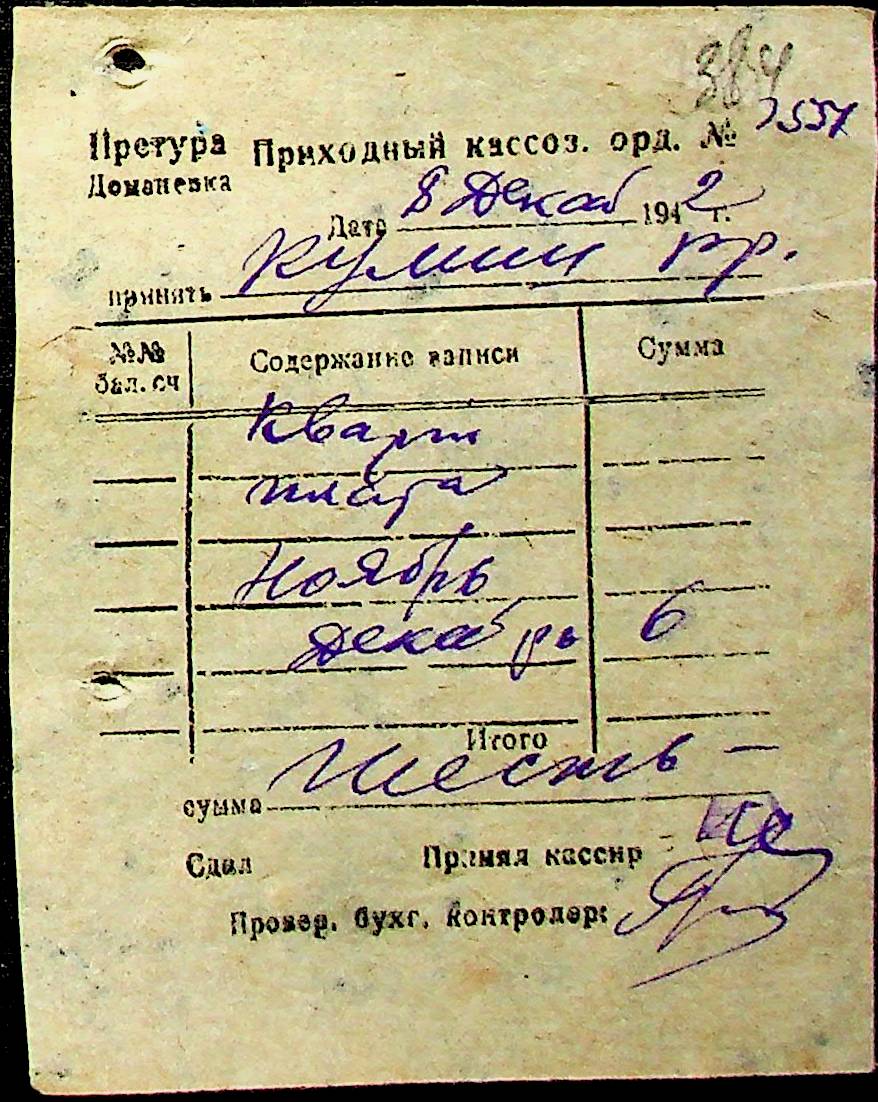 384
Претура Приходный кассов. орд. № 7551
Доманевка
Дата 8 Декаб 1942 г.
принять Кулиш гр.
№№ Содержание записи Сумма
бал. сч
Кварт
плата
Ноябрь
Декабрь 6
Итого
сумма Шесть —
Сдал Принял кассир
Провер. бухг. контролер: